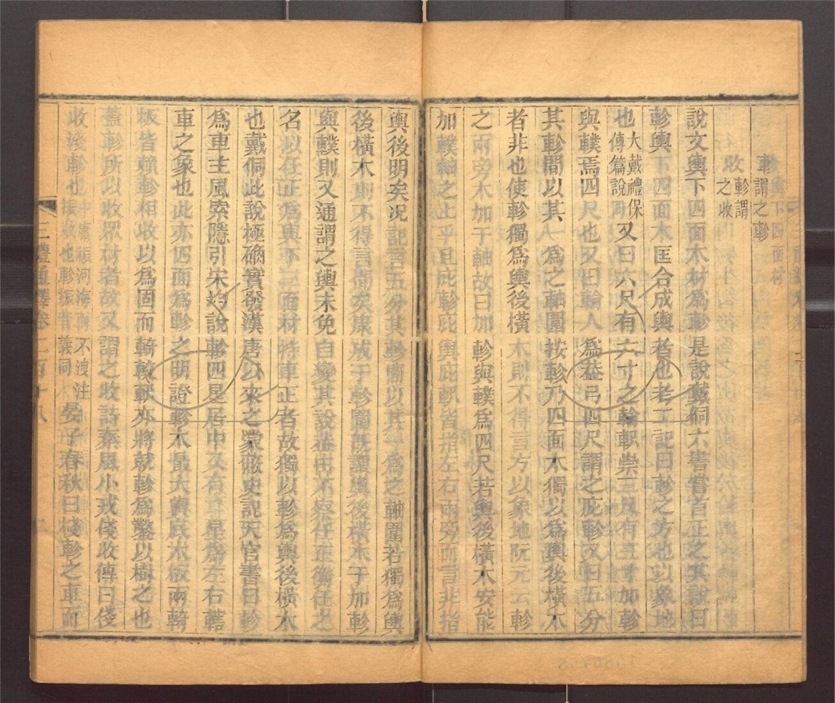 軫謂之軫輿下四面材
收軫謂之收
說文輿下四面木材為軫是說戴侗六書嘗首正之其說曰
軫輿下四面木匡合成輿者也考工記曰軫之方也以象地
也大戴禮保傅篇說同又曰六尺有六寸之輪軹崇三尺有三寸加軫
與轐焉四尺也又曰輪人為蓋弓四尺謂之庇軫又曰五分
其軫間以其一為之軸圍按軫乃四面木獨以為輿後橫木
者非也使軫獨為輿後橫木則不得言方以象地阮元云軫
之兩旁木加于軸故曰加軫與轐為四尺若輿後橫木安能
加轐軸之上乎且庇軫庇輿庇軹皆指左右兩旁而言非指
輿後明矣况記言五分其軫間以其一為之軸圍若獨為輿
後橫木則不得言間矣康成于軫圍既謂輿後橫木于加軫
與轐則又通謂之輿未免自變其說蓋由不察任正衡任之
名以任正為輿下三面材持車正者故獨以軫為輿後橫木
也戴侗此說極礭實發漢唐以來之蒙蔽史記天官書曰軫
為車主風索隱引宋均說軫四星居中又有二星為左右轄
車之象也此亦四面為軫之明證軫木最大輿底木板兩輢
板皆賴軫相收以為固而輢較軾亦將就軫為鑿以樹之也
蓋軫所以收眾材者故又謂之收詩秦風小戎俴收傳曰俴
收淺軫也中庸振河海而不洩注振收也軫振音義同晏子春秋曰棧軫之車而
三禮通釋卷二百十八